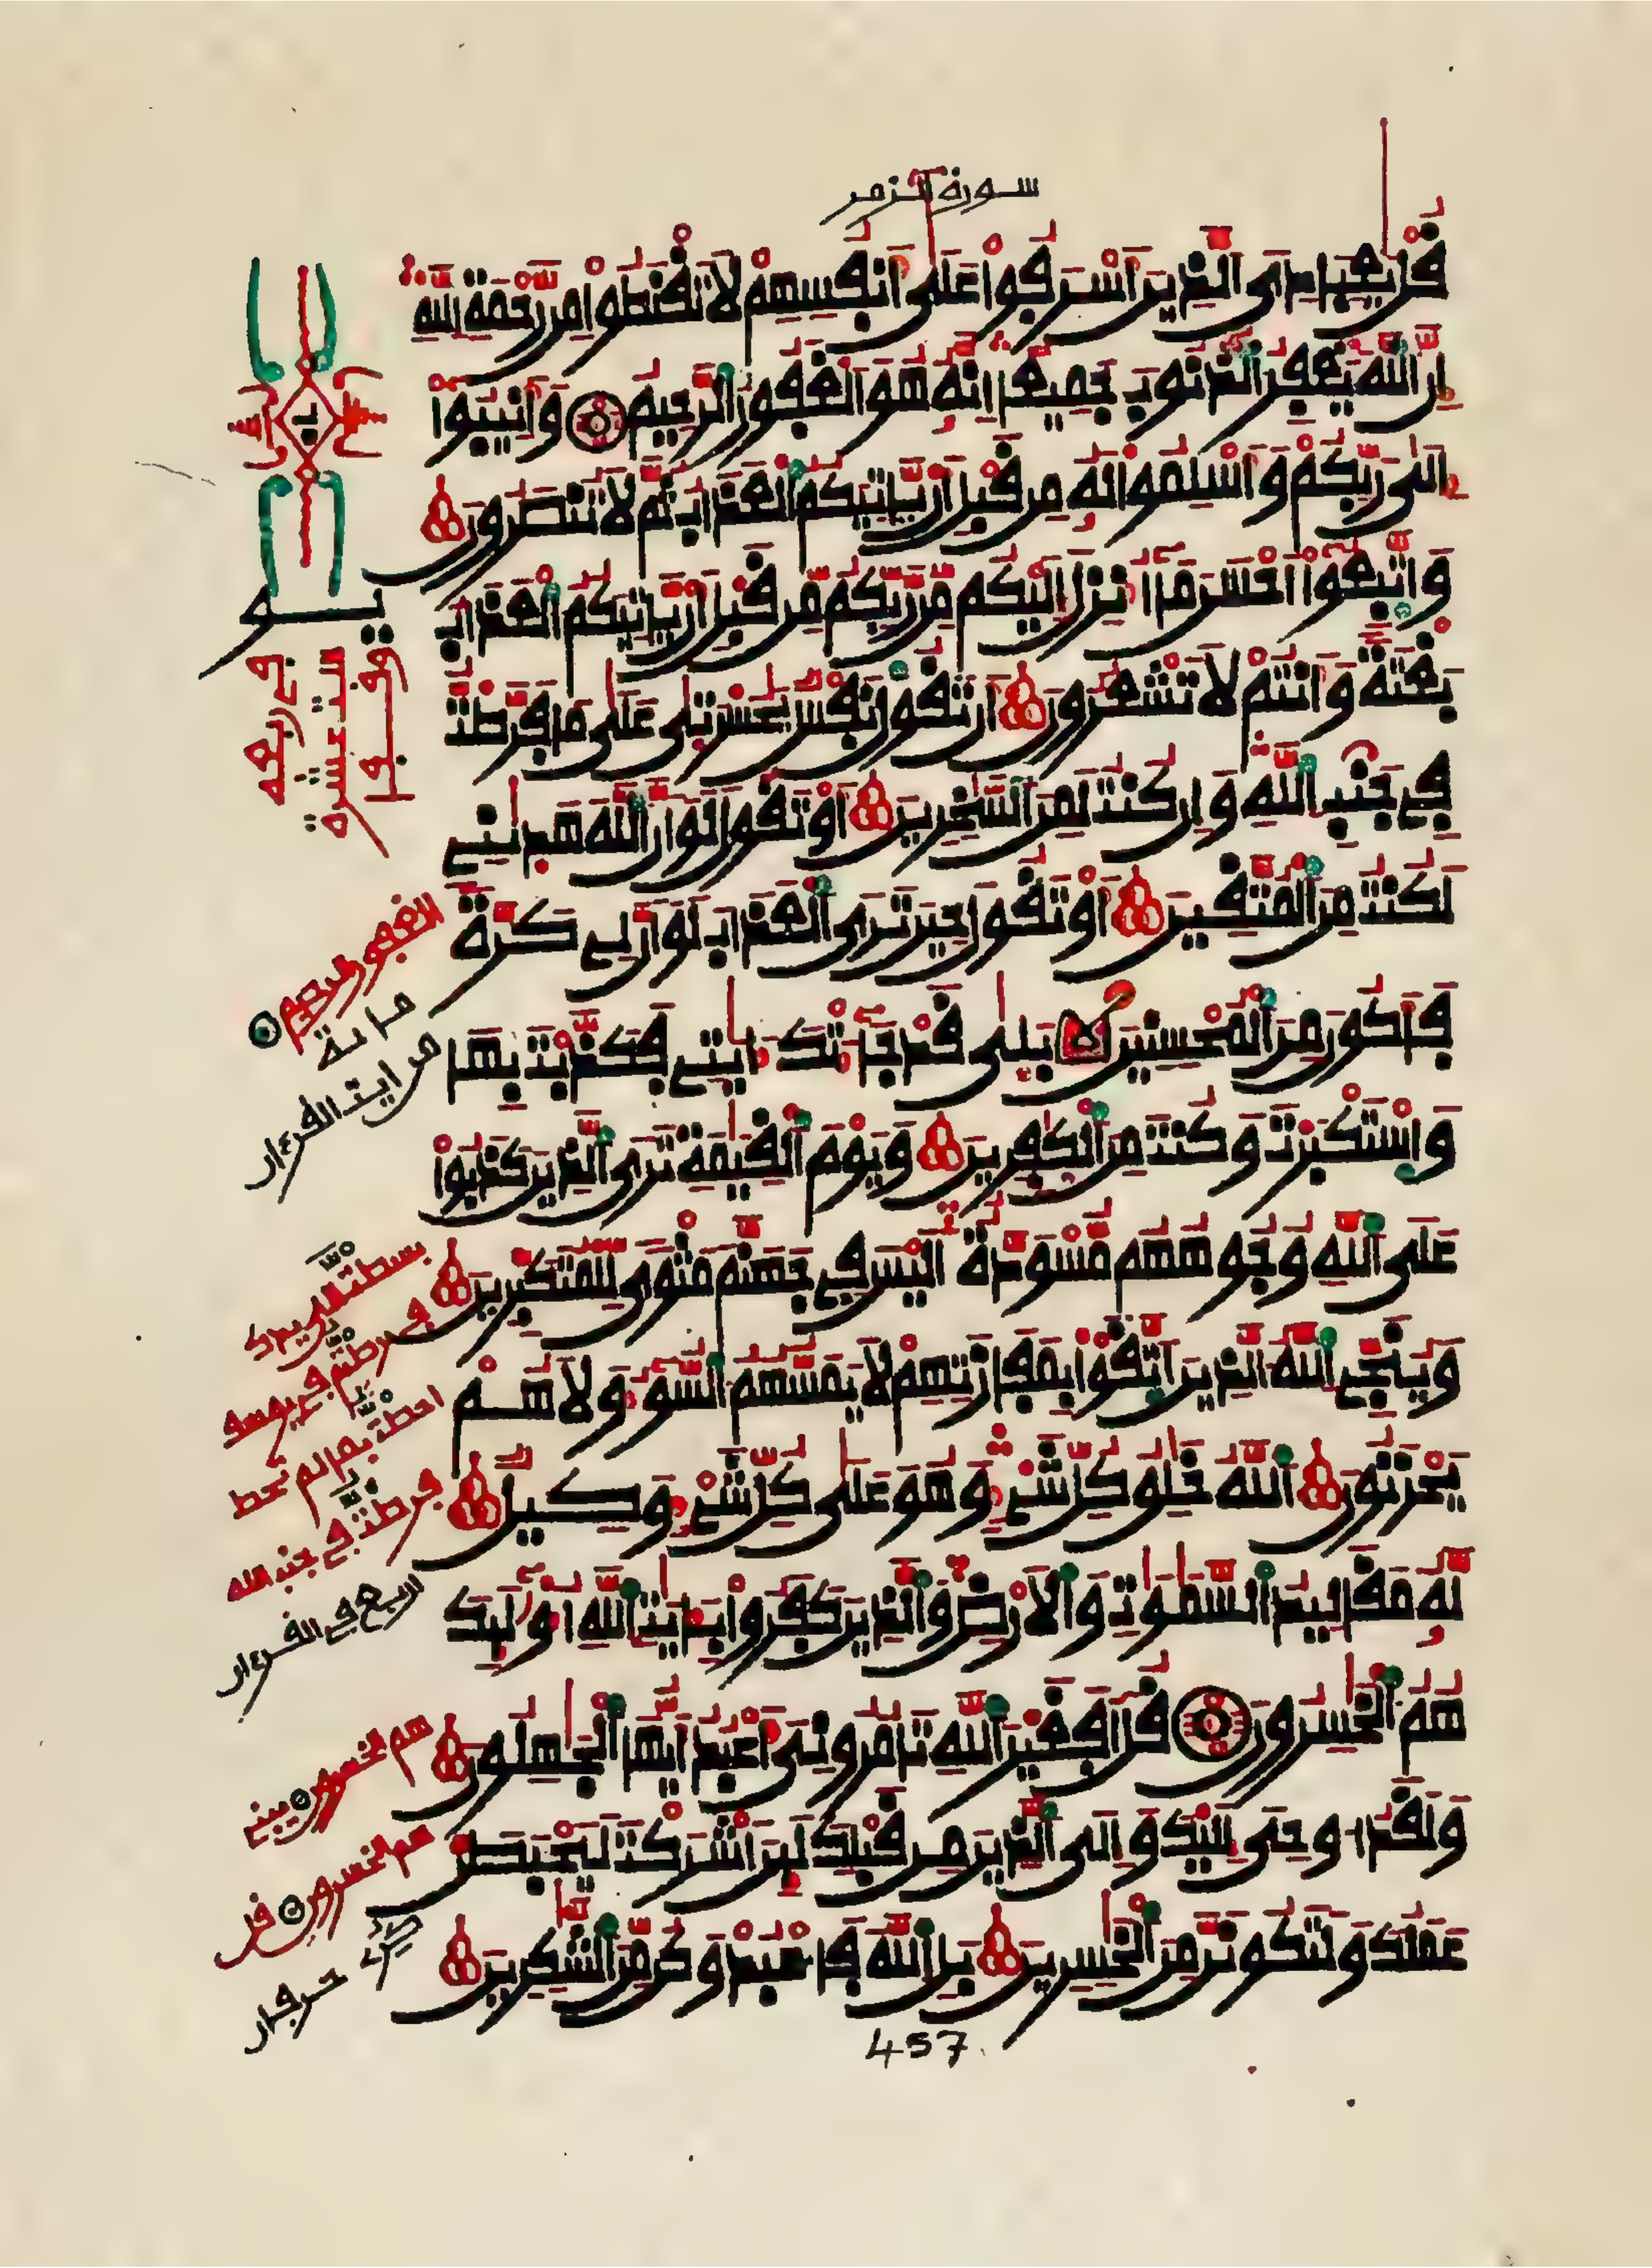 سورة الزمر
قُلْ يَٰعِبَادِىَ ٱلذِينَ أَسْرَفُوا۟ عَلَىٰٓ أَنفُسِهِمْ لَا تَقْنَطُوا۟ مِن رَّحْمَةِ ٱللَّهِ
إِنَّ ٱللَّهَ يَغْفِرُ ٱلذُّنُوبَ جَمِيعًا إِنَّهُۥ هُوَ ٱلْغَفُورُ ٱلرَّحِيمُ وَأَنِيبُوٓا۟
إِلَىٰ رَبِّكُمْ وَأَسْلِمُوا۟ لَهُۥ مِن قَبْلِ أَنْ يَّاتِيَكُمُ ٱلْعَذَابُ ثُمَّ لَا تُنصَرُونَ
وَٱتَّبِعُوٓا۟ أَحْسَنَ مَآ أُنزِلَ إِلَيْكُم مِّن رَّبِّكُم مِّن قَبْلِ أَنْ يَّاتِيَكُمُ ٱلْعَذَابُ
بَغْتَةً وَأَنتُمْ لَا تَشْعُرُونَ أَن تَقُولَ نَفْسٌ يَٰحَسْرَتَىٰ عَلَىٰ مَا فَرَّطتُ
فِى جَنۢبِ ٱللَّهِ وَإِن كُنتُ لَمِنَ ٱلسَّٰخِرِينَ أَوْ تَقُولَ لَوْ أَنَّ ٱللَّهَ هَدَىٰنِى
لَكُنتُ مِنَ ٱلْمُتَّقِينَ أَوْ تَقُولَ حِينَ تَرَى ٱلْعَذَابَ لَوْ أَنَّ لِى كَرَّةً
فَأَكُونَ مِنَ ٱلْمُحْسِنِينَ بَلَىٰ قَدْ جَآءَتْكَ ءَايَٰتِى فَكَذَّبْتَ بِهَا
وَٱسْتَكْبَرْتَ وَكُنتَ مِنَ ٱلْكَٰفِرِينَ وَيَوْمَ ٱلْقِيَٰمَةِ تَرَى ٱلذِينَ كَذَبُوا۟
عَلَى ٱللَّهِ وُجُوهُهُم مُّسْوَدَّةٌ أَلَيْسَ فِى جَهَنَّمَ مَثْوًى لِّلْمُتَكَبِّرِينَ
وَيُنَجِّى ٱللَّهُ ٱلذِينَ ٱتَّقَوْا۟ بِمَفَازَتِهِمْ لَا يَمَسُّهُمُ ٱلسُّوٓءُ وَلَا هُمْ
يَحْزَنُونَ ٱللَّهُ خَٰلِقُ كُلِّ شَىْءٍ وَهُوَ عَلَىٰ كُلِّ شَىْءٍ وَكِيلٌ
لَّهُۥ مَقَالِيدُ ٱلسَّمَٰوَٰتِ وَٱلْأَرْضِ وَٱلذِينَ كَفَرُوا۟ بِـَٔايَٰتِ ٱللَّهِ أُو۟لَٰٓئِكَ
هُمُ ٱلْخَٰسِرُونَ قُلْ أَفَغَيْرَ ٱللَّهِ تَامُرُونِىَ أَعْبُدُ أَيُّهَا ٱلْجَٰهِلُونَ
وَلَقَدُ ا۟وحِىَ إِلَيْكَ وَإِلَى ٱلذِينَ مِن قَبْلِكَ لَئِنَ ٱشْرَكْتَ لَيَحْبَطَنَّ
عَمَلُكَ وَلَتَكُونَنَّ مِنَ ٱلْخَٰسِرِينَ بَلِ ٱللَّهَ فَٱعْبُدْ وَكُن مِّنَ ٱلشَّٰكِرِينَ
الغفور الرحيم
مائة
من ايت القرءان
بسطت إلي يدك
فرطتم في يوسف
احطت بما لم تحط
فرطت في جنب الله
اربع في القرءان
هم الخسرون
هم الخسرون قل
457